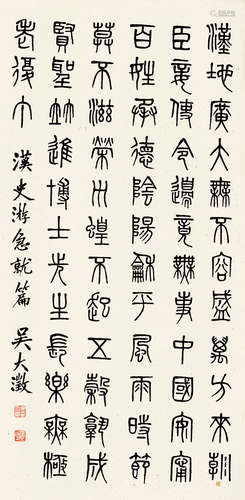 漢地廣大無不容盛萬方來朝
臣妾使令邊竟無事中國安寧
百姓承德陰陽龢平風雨時節
莫不滋榮災蝗不起五穀孰成
賢聖竝進博士先生長樂無極
老復丁
漢史游急就篇 吳大澂